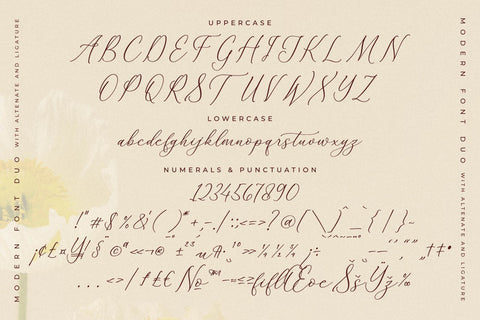 UPPERCASE
ABCDEFGHIJKLMN
OPQRSTUVWXYZ
LOWERCASE
abcdefghijklmnopqrstuvwxyz
NUMERALS & PUNCTUATION
1234567890
!"#$%&'()*+,-./:;<=>?@[\]^_`{|}~
MODERN FONT DUO WITH ALTENATE AND LIGATURE
MODERN FONT DUO WITH ALTENATE AND LIGATURE